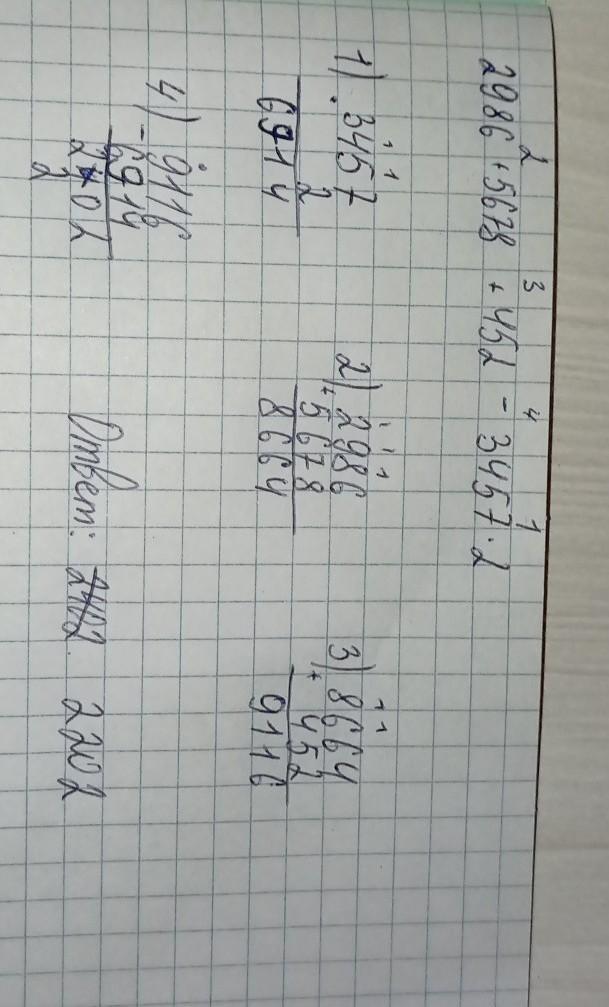 2 3 4 1
2986 + 5678 + 452 - 3457 · 2
1) 3457 2) 2986 3) 8664
· 2 + 5678 + 452
6914 8664 9116
4) 9116
- 6914
2202 Ответ: 2402 2202
2